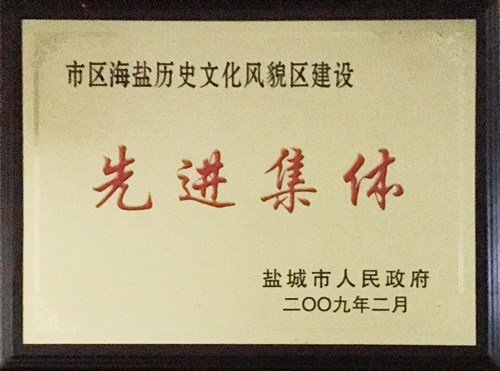 市区海盐历史文化风貌区建设
先进集体
盐城市人民政府
二〇〇九年二月